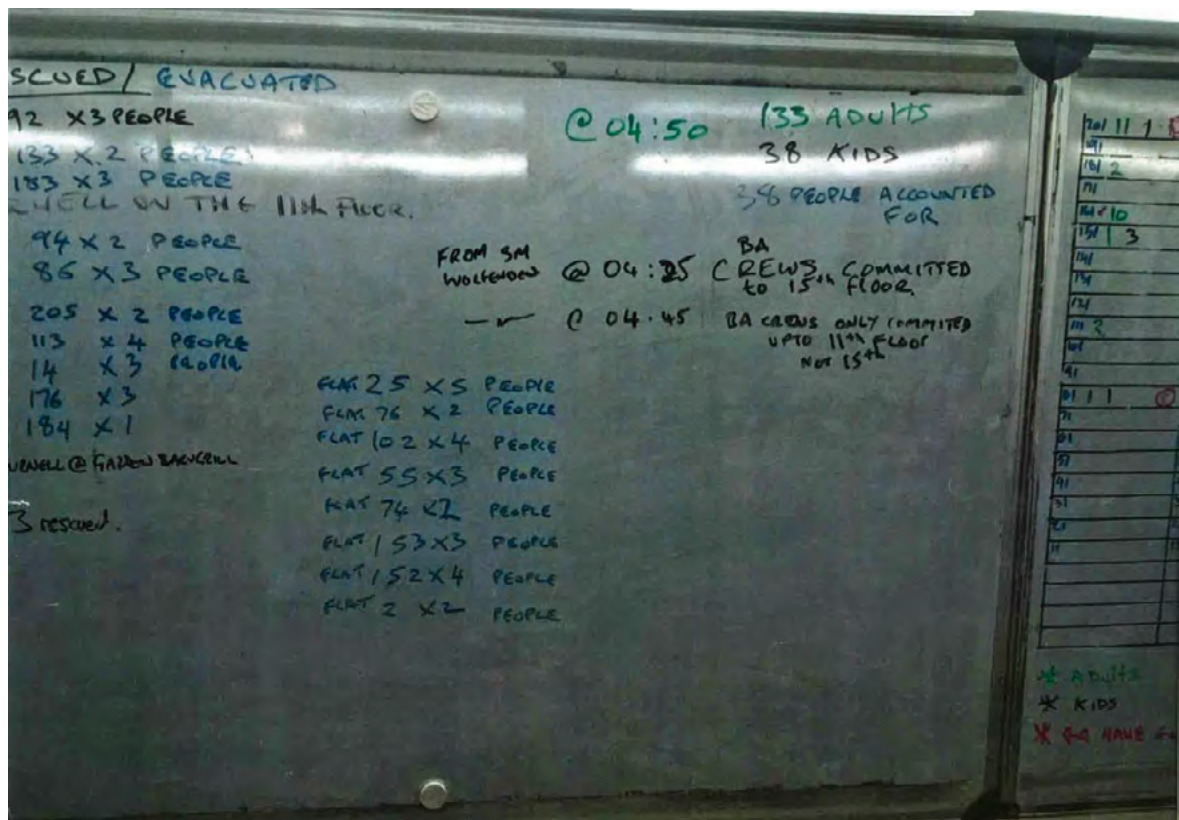 SCUED / EVACUATED
92 X3 PEOPLE
133 X 2 PEOPLE
183 X3 PEOPLE
ON THE 11th FLOOR.
94 X 2 PEOPLE
86 X 3 PEOPLE
205 X 2 PEOPLE
113 X 4 PEOPLE
14 X 3 PEOPLE
176 X3
184 X1
3 rescued.
FLAT 25 X5 PEOPLE
FLAT 76 X 2 PEOPLE
FLAT 102 X 4 PEOPLE
FLAT 55 X3 PEOPLE
FLAT 74 X2 PEOPLE
FLAT 153 X3 PEOPLE
FLAT 152 X4 PEOPLE
FLAT 2 X2 PEOPLE
@ 04:50 133 ADULTS
38 KIDS
38 PEOPLE ACCOUNTED
FOR
FROM SM
WOLFENDEN @ 04:25 BA
CREWS COMMITTED
to 15th FLOOR.
@ 04.45 BA CREWS ONLY COMMITED
UPTO 11th FLOOR
NOT 15th
20/ 11 1
19/
18/ 2
17/
16/ 10
15/ 1 3
14/
13/
12/
11/ 2
10/
9/
8/ 1 1
7/
6/
5/
3/
2/
* ADULTS
* KIDS
* HAVE